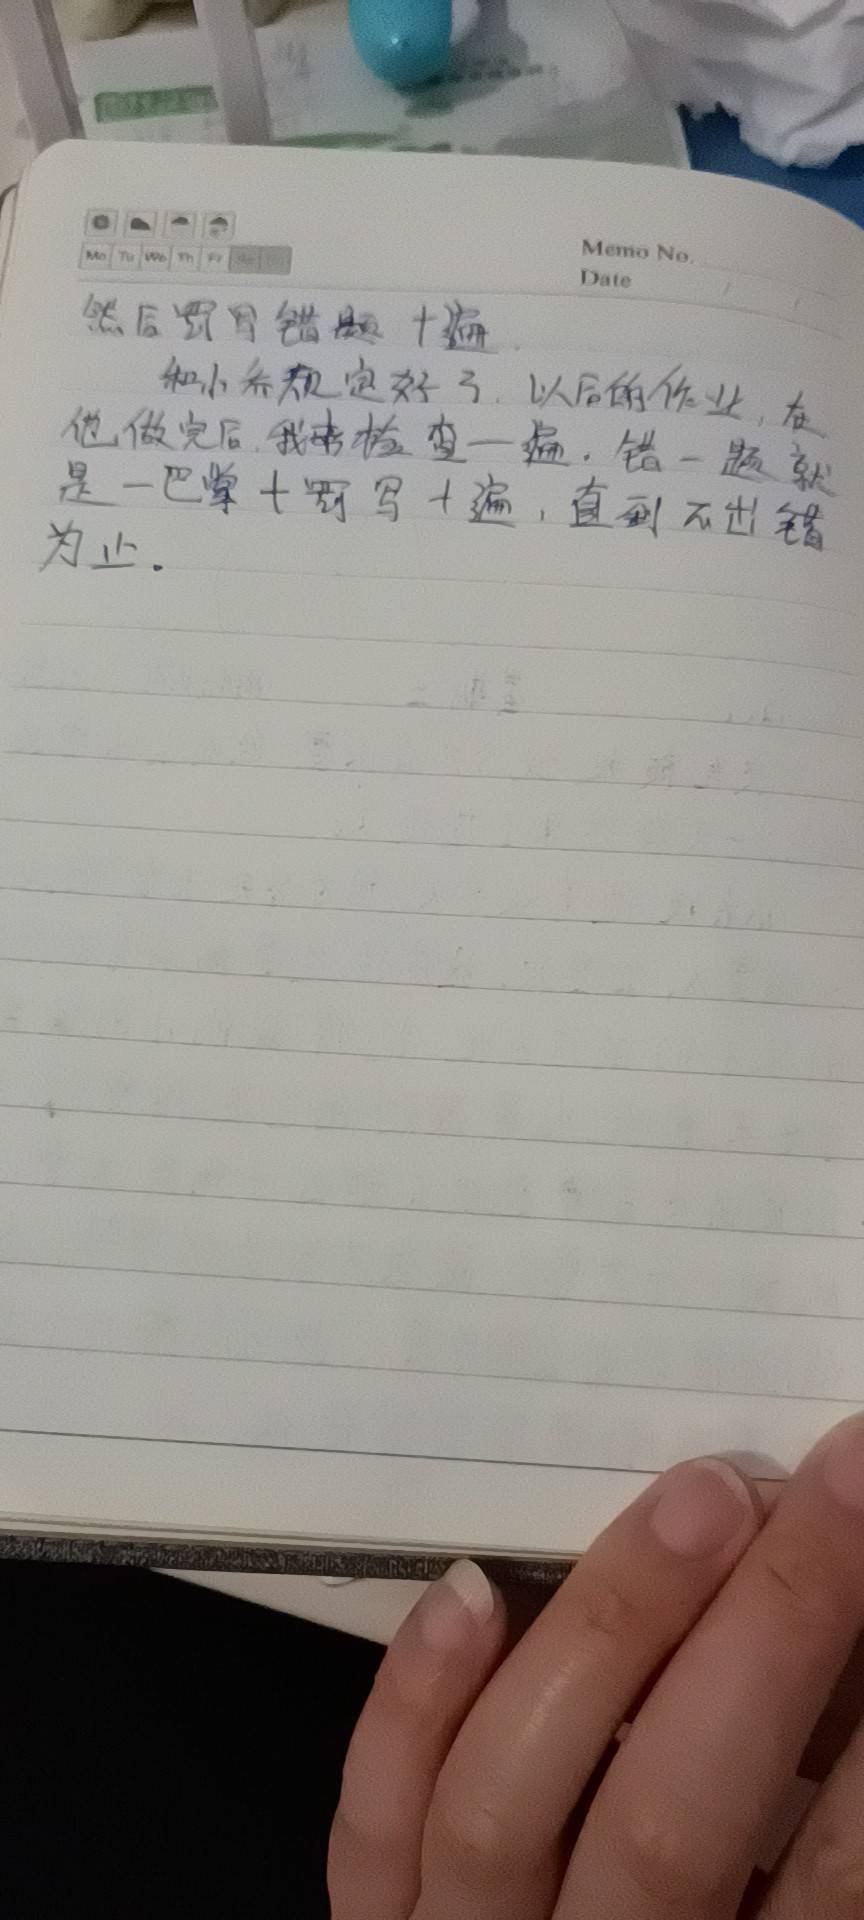 Mo Tu We Th Fr
Memo No.
Date
然后罚写错题十遍.
和小乔规定好了.以后的作业,在
他做完后,我来检查一遍.错一题就
是一巴掌+罚写十遍,直到不出错
为止.